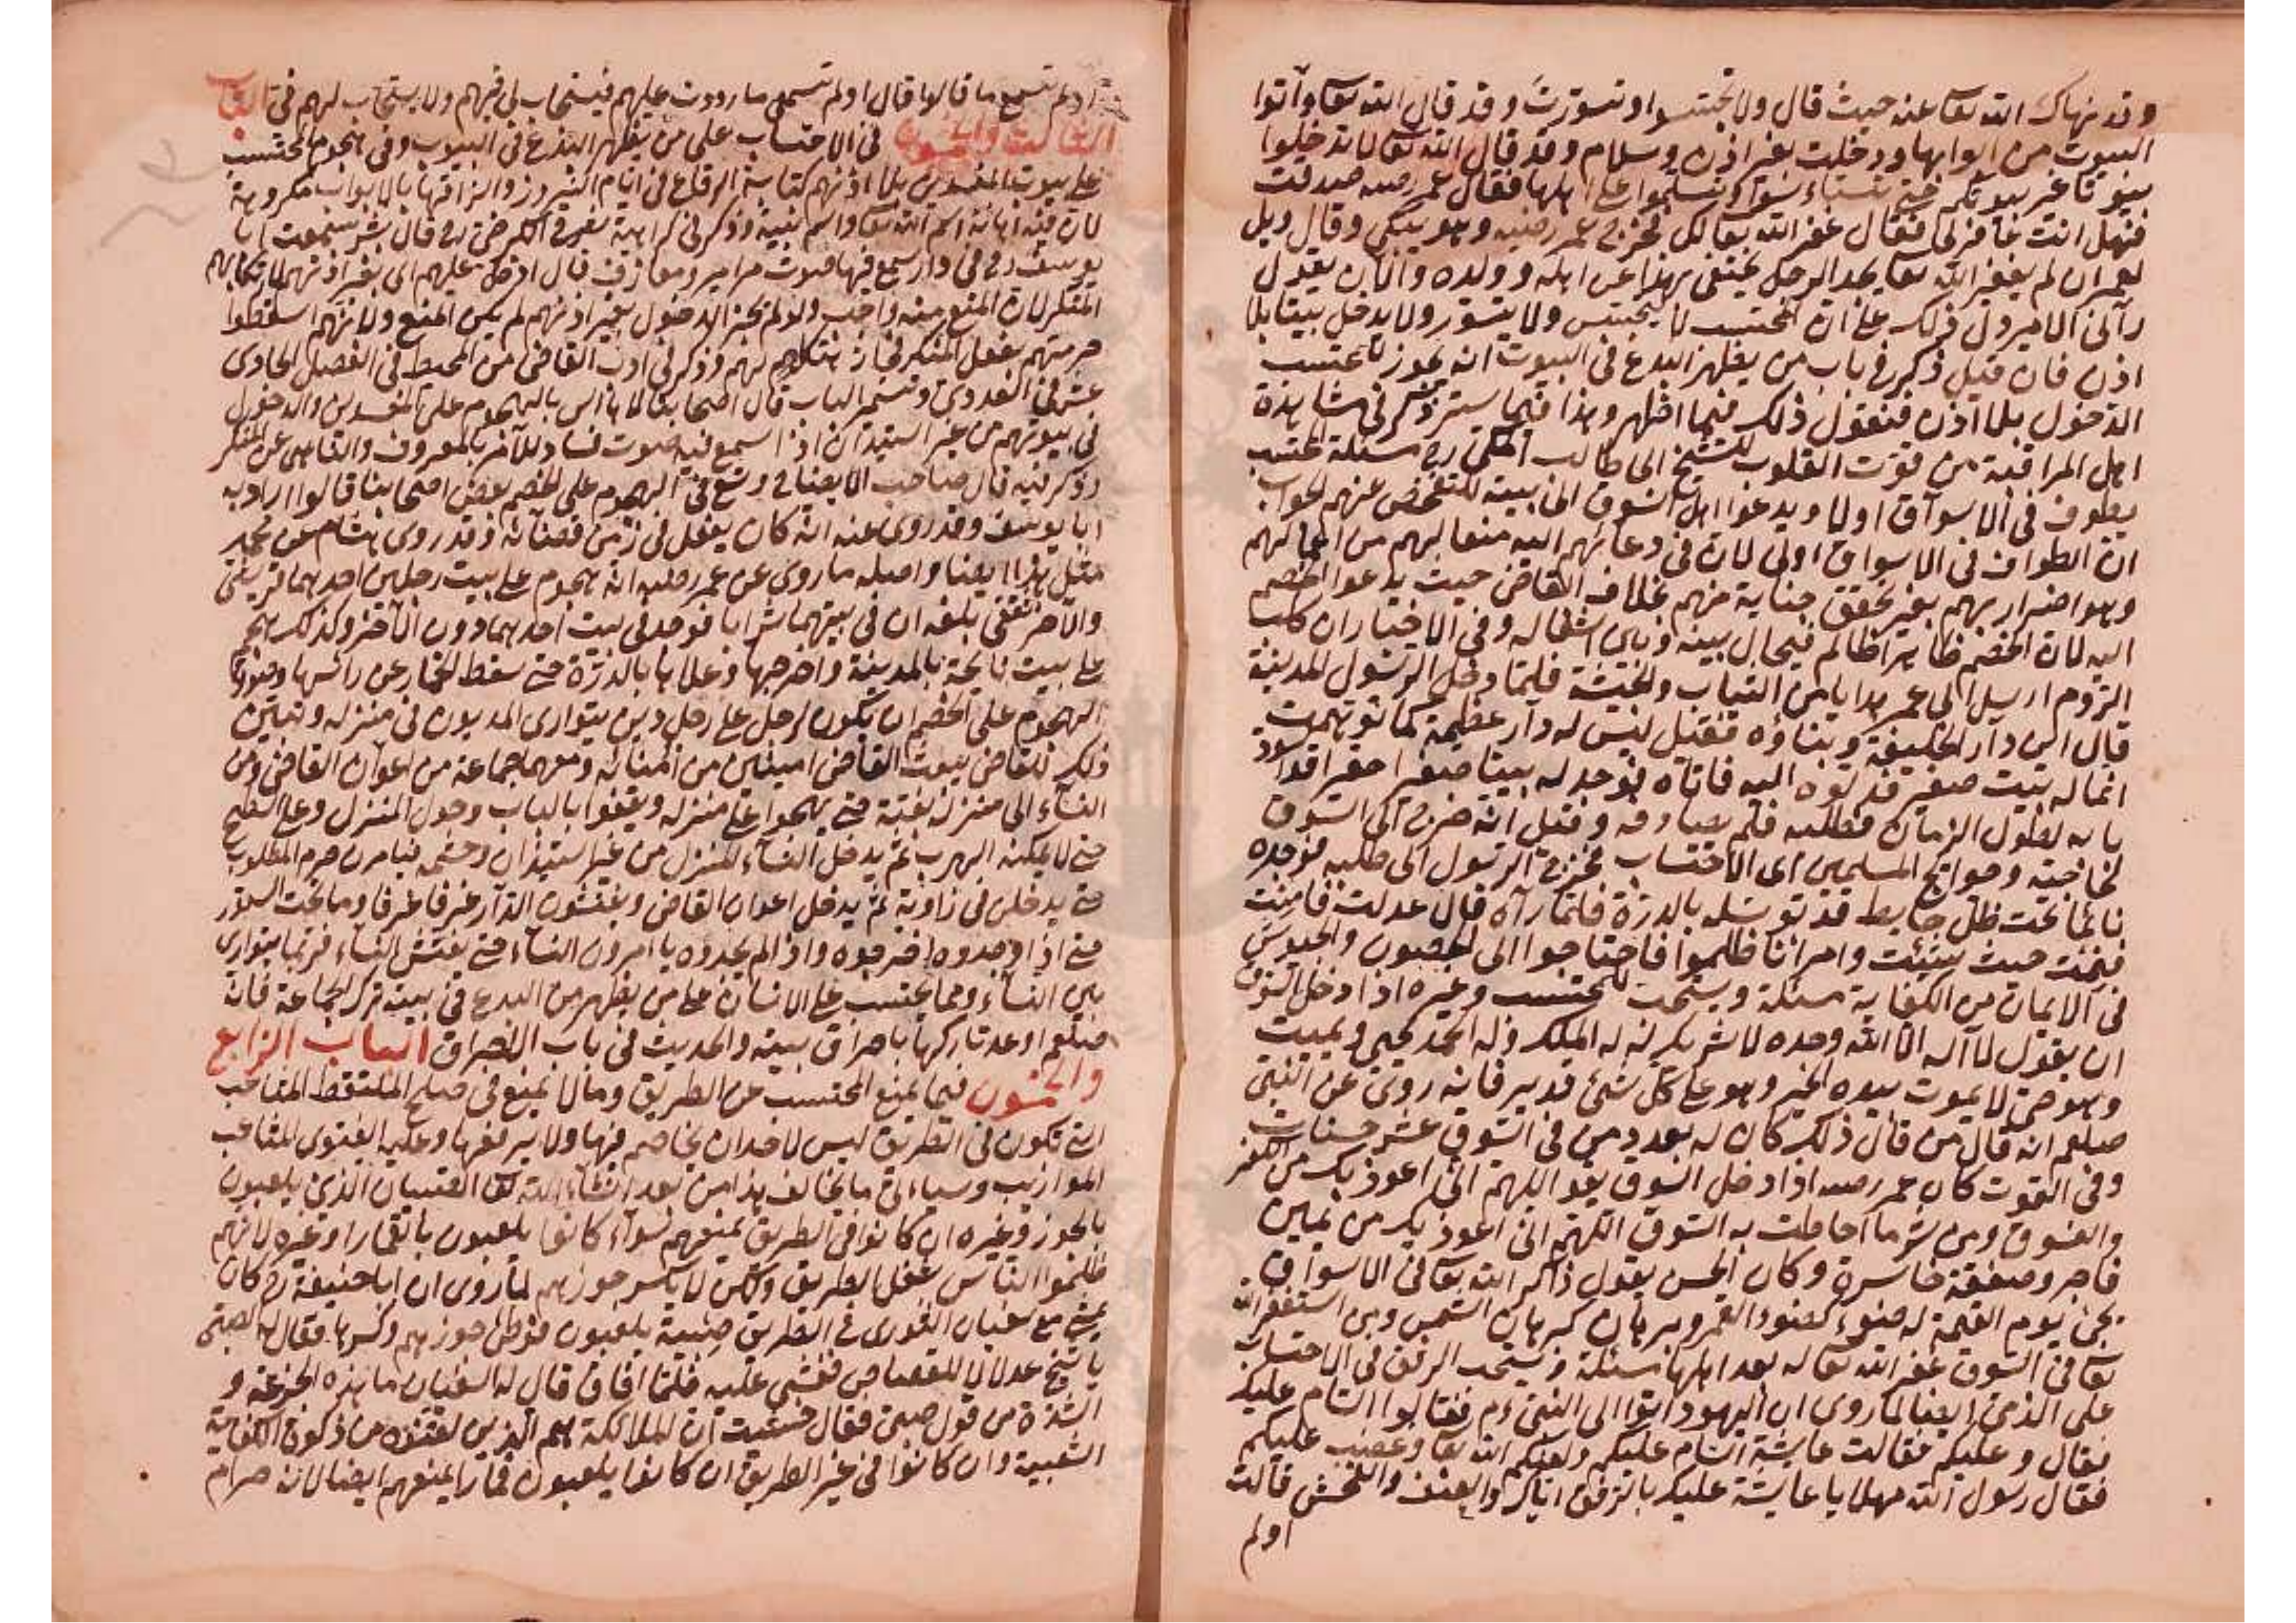 وقد نهاك الله تعا عنه حيث قال ولا تجسسوا وتسورت وقد قال الله تعا وآتوا
البيوت من ابوابها ودخلت بغير اذن وسلام وقد قال الله تعا لا تدخلوا
بيوتا غير بيوتكم حتى تستأنسوا وتسلموا على اهلها فقال عمر رضيه صدقت
فهل انت غافر لي فقال غفر الله تعا لك فخرج عمر رضيه وهو يبكي وقال ويل
لعمر ان لم يغفر الله تعا يجد الرجل يختفي بهذا عن اهله وولده والآن يقول
رآني الامير دل ذلك على ان المحتسب لا يتجسس ولا يتسور ولا يدخل بيتا بلا
اذن فان قيل ذكر في باب من يظهر البدع في البيوت انه يجوز للمحتسب
الدخول بلا اذن فنقول ذلك فيما اظهر وهذا فيما ستر وذكر في مشاهدة
اهل المراقبة من قوت القلوب للشيخ ابي طالب المكي رح مسئلة المحتسب
يطوف في الاسواق اولا ويدعوا اهل السوق الى بيته للتفحص عنهم الجواب
ان الطواف في الاسواق اولى لان في دعائهم اليه منعا لهم من اعمالهم
وهو اضرار بهم بغير تحقق جناية منهم بخلاف القاضي حيث يدعوا الخصم
اليه لان الخصم ظاهرا ظالم فيحال بينه وبين اشغاله وفي الاختيار ان كلب
الروم ارسل الى عمر هدايا من الثياب والخبشة فلما دخل الرسول المدينة
قال اين دار الخليفة وبناؤه فقيل ليس له دار عظيمة كما توهمت
انما له بيت صغير فدلوه اليه فاتاه فوجد له بيتا صغيرا حقيرا قد اسود
بابه لطول الزمان فطلبه فلم يصادفه وقيل انه خرج الى السوق
لحاجته وحوايج المسلمين اى الاحتساب فخرج الرسول الى طلبه فوجده
نائما تحت ظل حايط قد توسد بالدرة فلما رآه قال عدلت فامنت
فنمت حيث شئت وامراؤنا ظلموا فاحتاجوا الى الحصون والجيوش
في الايمان من الكفاية مسئلة ويستحب للمحتسب وغيره اذا دخل السوق
ان يقول لا اله الا الله وحده لا شريك له له الملك وله الحمد يحيى ويميت
وهو حي لا يموت بيده الخير وهو على كل شئ قدير فانه روى عن النبي
صلعم انه قال من قال ذلك كان له بعدد من في السوق عشر حسنات
وفي القوت كان عمر رضيه اذا دخل السوق يقو اللهم اني اعوذ بك من الكفر
والفسوق ومن شر ما احاطت به السوق اللهم اني اعوذ بك من يمين
فاجر وصفقة خاسرة وكان الحسن يقول ذاكر الله تعا في الاسواق
يجئ يوم القيمة له ضوء كضوء القمر وبرهان كبرهان الشمس ومن استغفر الله
تعا في السوق غفر الله تعا له بعدد اهلها مسئلة ويستحب الرفق في الاحتساب
على الذمي ايضا لما روى ان اليهود اتوا الى النبي ءم فقالوا السام عليك
فقال وعليكم فقالت عايشة السام عليكم ولعنكم الله تعا وغضب عليكم
فقال رسول الله مهلا يا عايشة عليك بالرفق اياك والعنف والفحش قالت
اولم
اولم تسمع ما قالوا قال اولم تسمعى ما رددت عليهم فيستجاب لي فيهم ولا يستجاب لهم في الباب
الثالث والخمسون في الاحتساب على من يظهر البدع في البيوت وفي هجوم المحتسب
على بيوت المفسدين بلا اذنهم كتابة الرقاع في ايام النيروز والزاقها بالابواب مكروهة
لان فيه اهانة اسم الله تعا واسم نبيه وذكر في كراهية شرح الكرخي رح قال بشر سمعت ابا
يوسف رح في دار سمع فيها صوت مزامير ومعازف قال ادخل عليهم اى بغير اذنهم لارتكابهم
المنكر لان المنع منه واجب ولو لم يجز الدخول بغير اذنهم لم يمكن المنع ولانهم اسقطوا
حرمتهم بفعل المنكر فجاز هتكها لهم وذكر في ادب القاضي من المحيط في الفصل الحادى
عشر في العدوى وتسمير الباب قال اصحابنا لا بأس بالهجوم على المفسدين والدخول
في بيوتهم من غير استيذان اذا سمع فيه صوت فساد للآمر بالمعروف والناهى عن المنكر
وذكر فيه قال صاحب الاقضية وسّع في الهجوم على الخصم بعض اصحابنا قالوا اراد به
ابا يوسف وقد روى عنه انه كان يفعل في زمن قضائه وقد روى هشام عن محمد
مثل هذا ايضا واصله ما روى عن عمر رضيه انه هجوم على بيت رجلين احدهما قريشي
والآخر ثقفي بلغه ان في بيتهما شرابا فوجد في بيت احدهما دون الآخر وكذلك هجم
على بيت نايحة بالمدينة واخرجها وعلاها بالدرة حتى سقط الخمار عن رأسها وصورة
الهجوم على الخصم ان يكون لرجل على رجل دين يتوارى المديون في منزله وتبين
ذلك للقاضي يبعث القاضي امينين من امنائه ومعهما جماعة من اعوان القاضي ومن
النساء الى منزله بغتة حتى يهجموا على منزله ويقفوا بالباب وحول المنزل وعلى السطح
حتى لا يمكنه الهرب ثم يدخل النساء المنزل من غير استيذان وحشمة فيامرن حرم المطلوب
حتى يدخلن في زاوية ثم يدخل اعوان القاضي ويفتشون الدار غرفا غرفا وما تحت السرر
حتى اذا وجدوه اخرجوه واذا لم يجدوه يامرون النساء حتى تفتش النساء فربما يتوارى
بين النساء ومما يحتسب على الانسان على من يظهر من البدع في بيته ترك الجماعة فانه
صلعم اوعد تاركها باحراق بيته والحديث في باب الاحراق الباب الرابع
والخمسون فيما يمنع المحتسب عن الطريق وما لا يمنع في صلح الملتقط المثاعب
التى تكون في الطريق ليس لاحد ان يخاصم فيها ولا يرفعها وعليه الفتوى المثاعب
الموازيب وسيأتى ما يخالف هذا من بعد انشاء الله تعا الصبيان الذي يلعبون
بالجوز وغيره ان كانوا في الطريق يمنعهم سواء كانوا يلعبون بالقمار او غيره لانهم
ظلموا الناس بشغل الطريق ولكن لا يكسر جوزهم لما روى ان ابا حنيفة رح كان
يمشى مع سفيان الثورى في الطريق صبية يلعبون فوطئ جوزهم وكسرها فقال له الصبي
يا شيخ عدلا للقصاص فغشي عليه فلما افاق قال له سفيان ما هذه الجزعة و
الشدة من قول صبي فقال خشيت ان الملائكة هم الذين لقنوه من ذكوة الكفاية
الشعبية وان كانوا في غير الطريق ان كانوا يلعبون قمارا يمنعهم ايضا لانه حرام